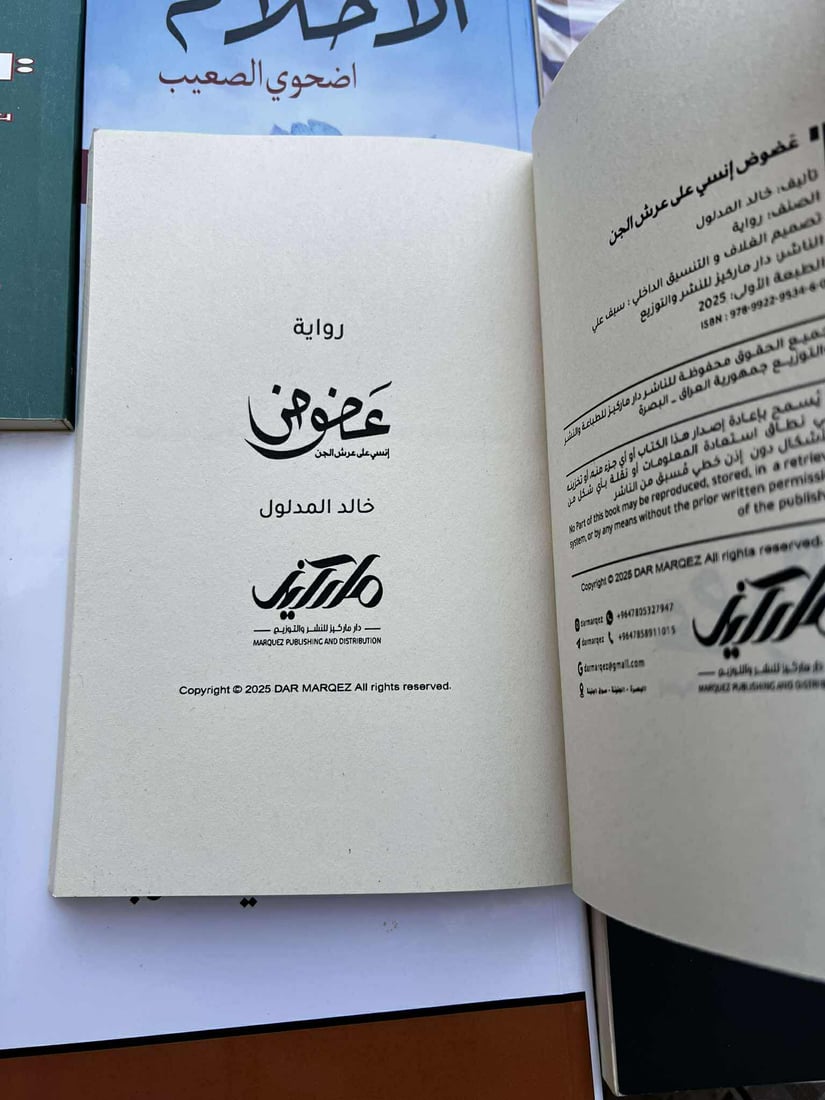 الأحلام
اضحوي الصعيب
غضوض إنسي على عرش الجن
تأليف: خالد المدلول
الصنف: رواية
تصميم الغلاف و التنسيق الداخلي: سيف علي
الناشر: دار ماركيز للنشر والتوزيع
الطبعة الأولى: 2025
ISBN : 978-9922-9534-6-0
جميع الحقوق محفوظة للناشر دار ماركيز للطباعة والنشر
والتوزيع جمهورية العراق - البصرة
يُسمح بإعادة إصدار هذا الكتاب أو أي جزء منه أو تخزينه
في نطاق استعادة المعلومات أو نقلة بأي شكل من
أشكال دون إذن خطي مُسبق من الناشر
No Part of this book may be reproduced, stored, in a retrieve
system, or by any means without the prior written permissi
of the publish
Copyright © 2025 DAR MARQEZ All rights reserved.
darmarqez +9647805327947
darmarqez +9647858911015
darmarqez@gmail.com
ماركيز
دار ماركيز للنشر والتوزيع
MARQUEZ PUBLISHING AND DISTRIB
رواية
غضوض
إنسي على عرش الجن
خالد المدلول
ماركيز
دار ماركيز للنشر والتوزيع
MARQUEZ PUBLISHING AND DISTRIBUTION
Copyright © 2025 DAR MARQEZ All rights reserved.